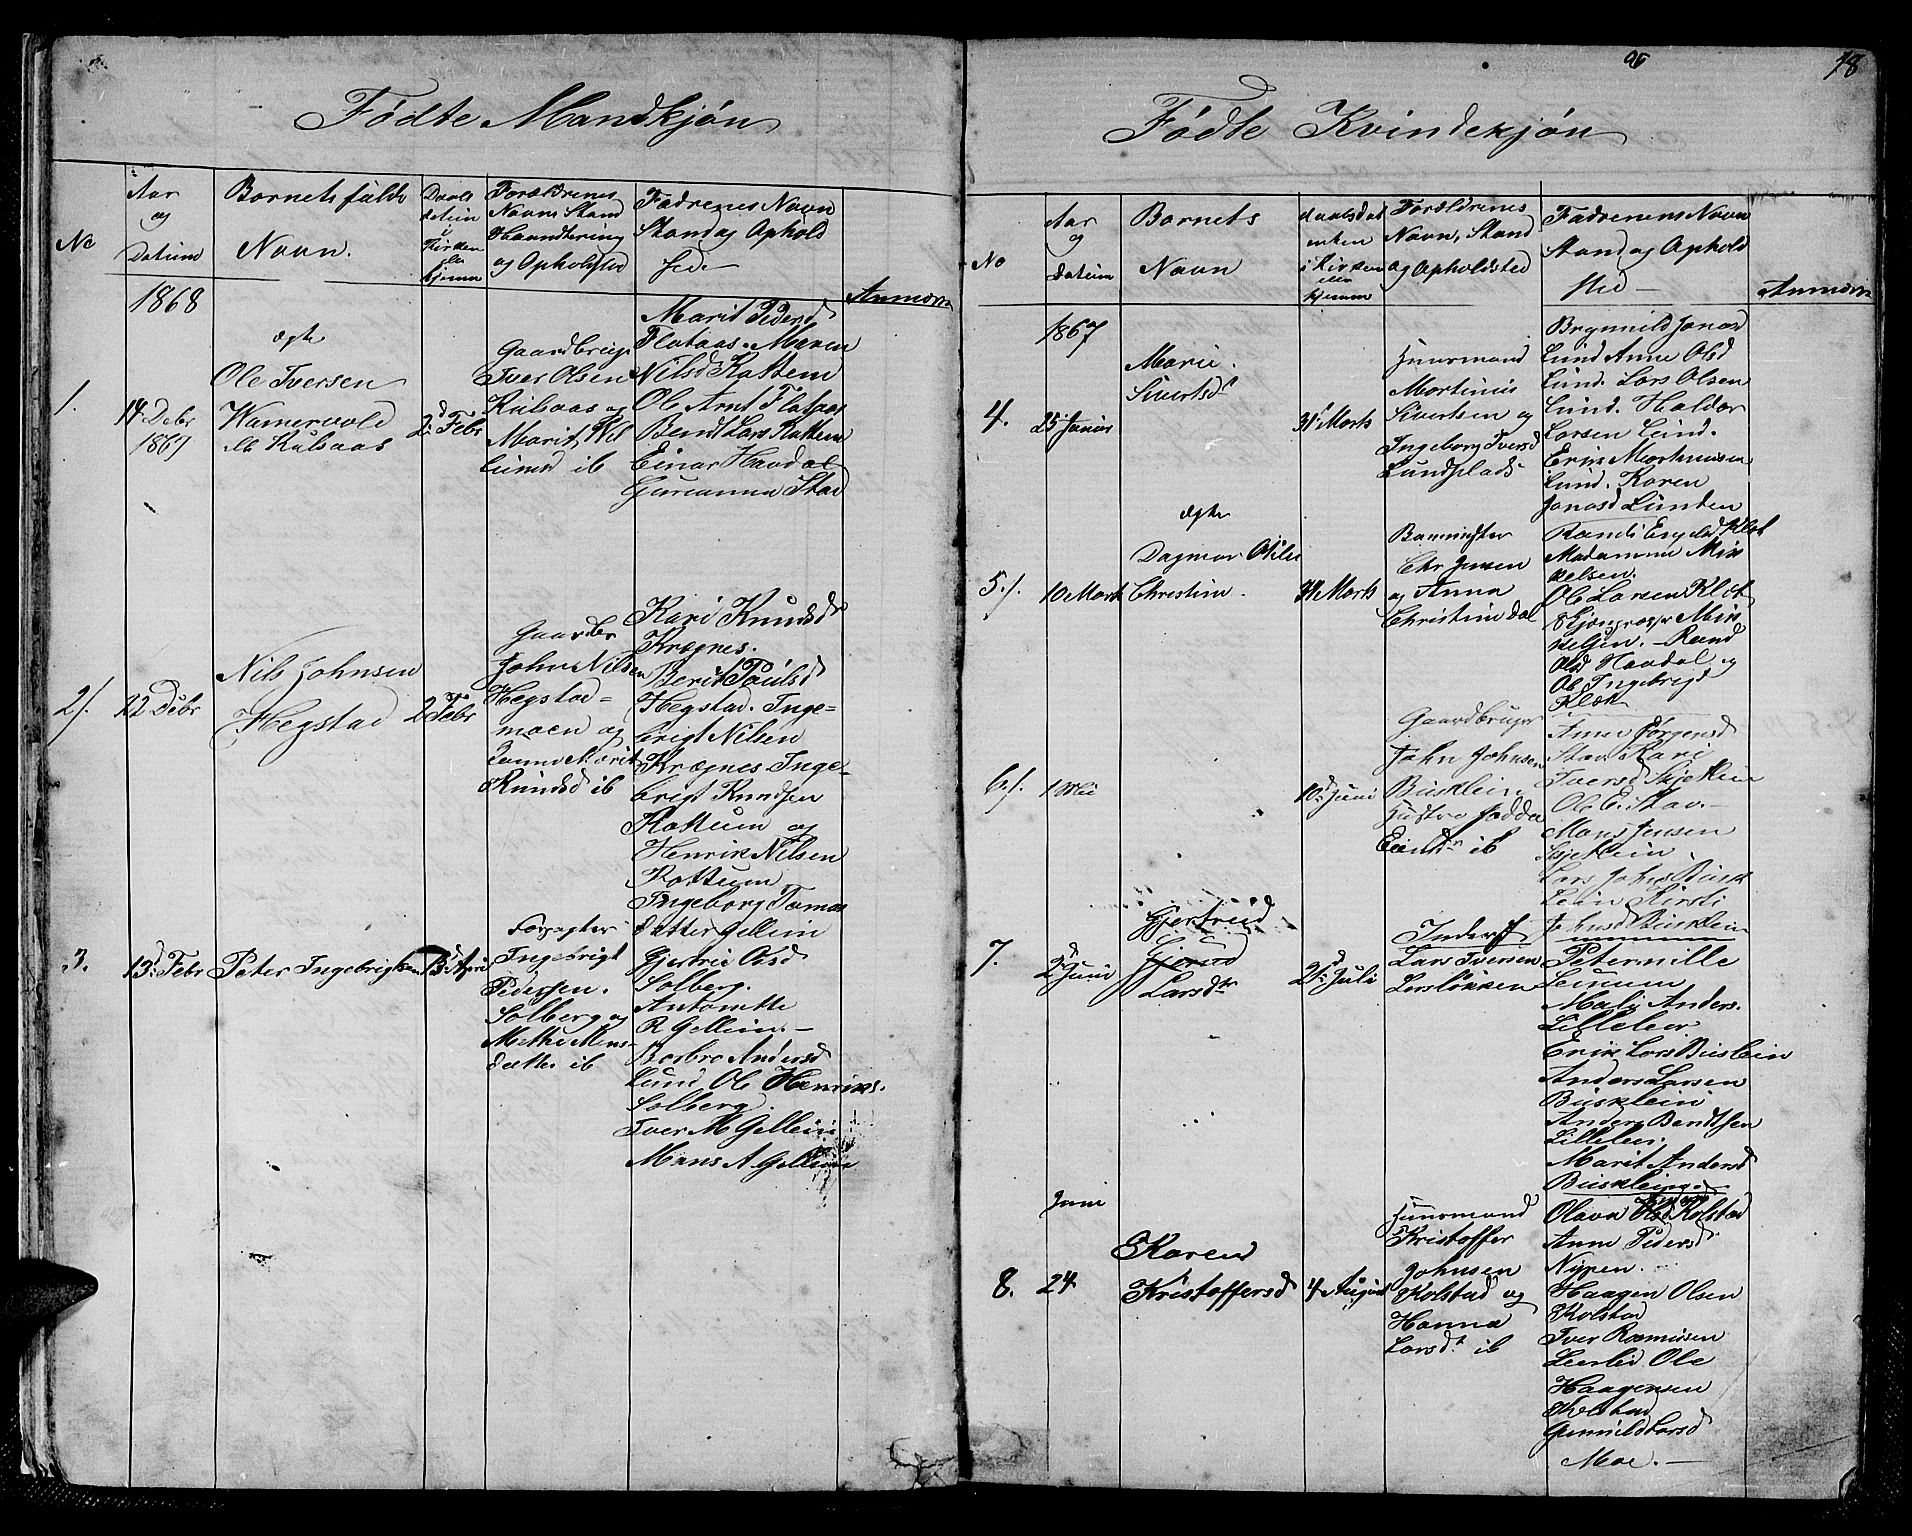 Fødte Mandkjøn
No
Aar
og
Datum
Barnets fulde
Navn.
Daabs
datum
i
Kirken
elle
hjemme
Forældrenes
Navn Stand
Haandtering
og Opholdsted
Fadrenes Navn
Stand og Ophold
sted
Anmærk
1868
1.
14 Debr
1867
ægte
Ole Iversen
Kulsaas
2d Febr
Gaardbrug.
Iver Olsen
Kulsaas og
Marit
ib
Marit Pedersd
Flataas. Maren
Nilsd Kattem
Ole Arnt Flataas
Bendt Lars Kattem
Einar Havdal
Gurianna Stav
2/.
22 Debr
Nils Johnsen
Hegstad
2 Febr
Gaardbr
John Nilsen
Hegstad-
moen og
Marit
Knudsd ib
Kari Knudsd
Krægnes.
Berit Paulsd
Hegstad. Inge-
brigt Nilsen
Krægnes Inge-
brigt Knudsen
Kattum og
Henrik Nilsen
Kattum
Ingeborg Tomas
datter Gellein
3.
13d Febr
Peter Ingebrigtsen
Forpagter
Ingebrigt
Pedersen.
Solberg og
Methe Mons-
datter ib
Gjertrie Olsd
Solberg.
Antonette
R Gellein.-
Barbro Andersd
Lund Ole Henriks.
Solberg.
Iver M Gellein
Mans A Gellein
96
18
Fødte Kvindekjøn
No
Aar
og
datum
Barnets
Navn
daabsdat
enten
i Kirken
elle
hjemme
Forældrenes
Navn, Stand
og Opholdsted
Fadrenens Navn
Stand og Ophold
sted
Anmærk
1867
4.
25 Januar
Marie.
Sivertsd
31 Marts
Huusmand
Mortinus
Sivertsen og
Ingeborg Iversd
Lundplads
Brynnild Jonasd
Lund Anne Olsd
Lund. Lars Olsen
Lund. Haldor
Larsen Lund.
Erik Mortinusen
Lund. Karen
Jonasd Lunden
5/.
10 Marts
ægte
Dagmar Otilie
Christine.
31 Marts
Chr Jensen
og Anna
Christine Dal
Randi Engelsd Klæt
Madamme Mik
kelsen.
Ole Larsen Klæt
Mik
kelsen. Rand
Olsd Havdal og
Ole Ingebrigt
Klæt
6/.
1 Mai
10d Juni
Gaardbruger
John Johnsen
Busklein
Hustro
ib
Ane Jørgensd
Stav Kari
Iversd Skjetlein
Ole E. Stav.-
Mons Jensen
Skjetlein
Lars Johns Busk
lein Kirsti
Johnsd Busklein
7.
2d Juni
Gjertrud
Larsdr
21d Juli
Inderst
Lars Iversen
Larsløkken
Peternille
Leinum
Mali Anders.
Lilleleir
Erik Lars Busklein
Anders Larsen
Busklein
Anders Bendtsen
Lilleleir.
Marit Andersd
Busklein.
8.
Juni
24
Karen
Kristoffersd
4 August
Huusmand
Kristoffer
Johnsen
Kolstad og
Hanna
Larsd. ib
Olava Kolstad
Anne Pedersd
Nypen.
Haagen Olsen
Kolstad
Iver Rasmusen
Leerlid Ole
Haagensen
Kolstad
Gunnild Larsd
Moe.-